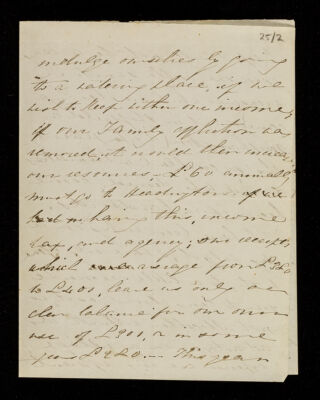 25/2
indulge ourselves by going
to a watering place, if we
wish to keep within our income,
if our Family Affliction was
removed, it would then increase
our resources, £60 annually
must go to Headington if we
this, income
tax, and agency; our receipts
which average from
to £400, leave us only a
clear balance for our own
use of £300, or in some
years £240. — This year